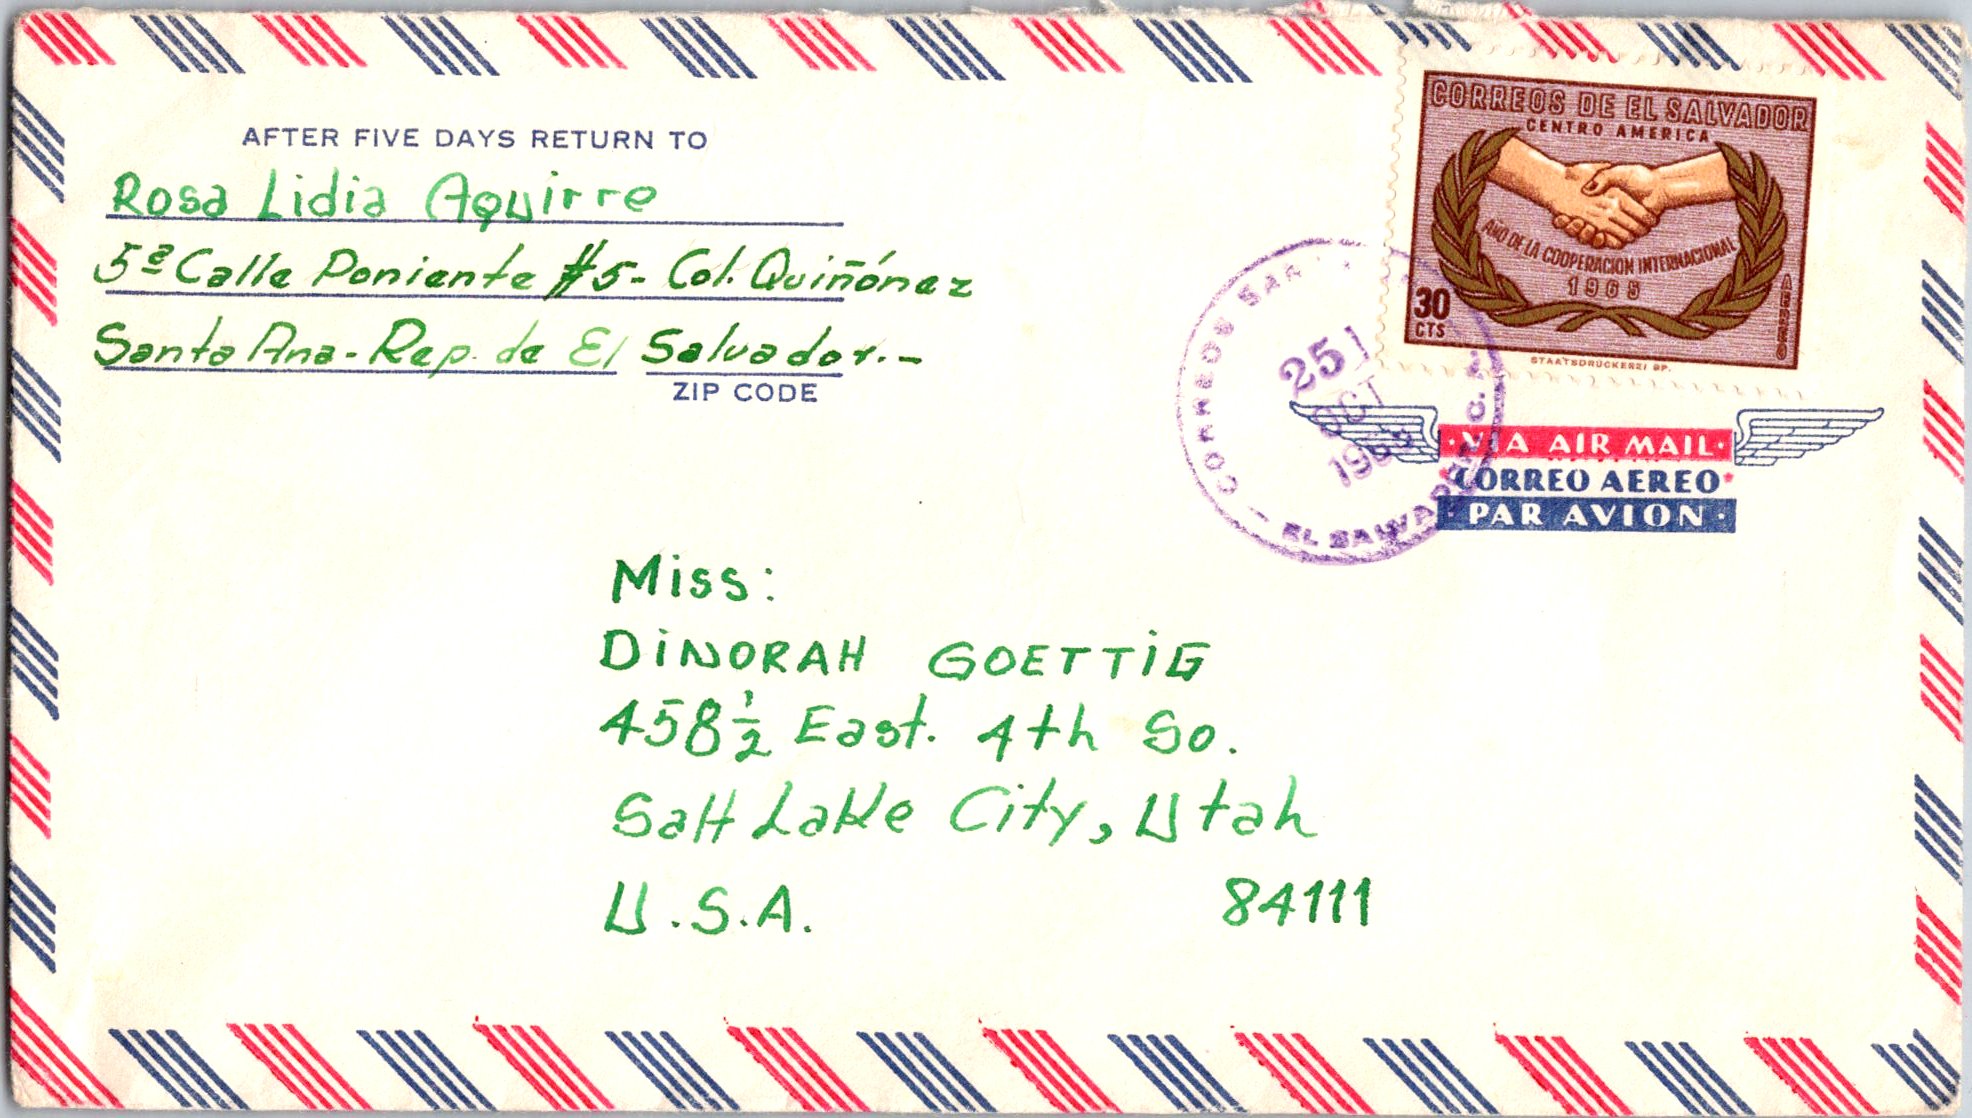 AFTER FIVE DAYS RETURN TO
Rosa Lidia Aguirre
5ª Calle Poniente #5- Col. Quiñónez
Santa Ana-Rep. de El Salvador.-
ZIP CODE
CORREOS DE EL SALVADOR
CENTRO AMERICA
AÑO DE LA COOPERACION INTERNACIONAL
1965
30
CTS
AEREO
STAATSDRUCKEREI BP.
CORREOS
25
OCT
EL SALVADOR, C. A.
·VIA AIR MAIL·
CORREO AEREO
PAR AVION·
Miss:
DINORAH GOETTIG
458½ East. 4th So.
Salt Lake City, Utah
U.S.A. 84111